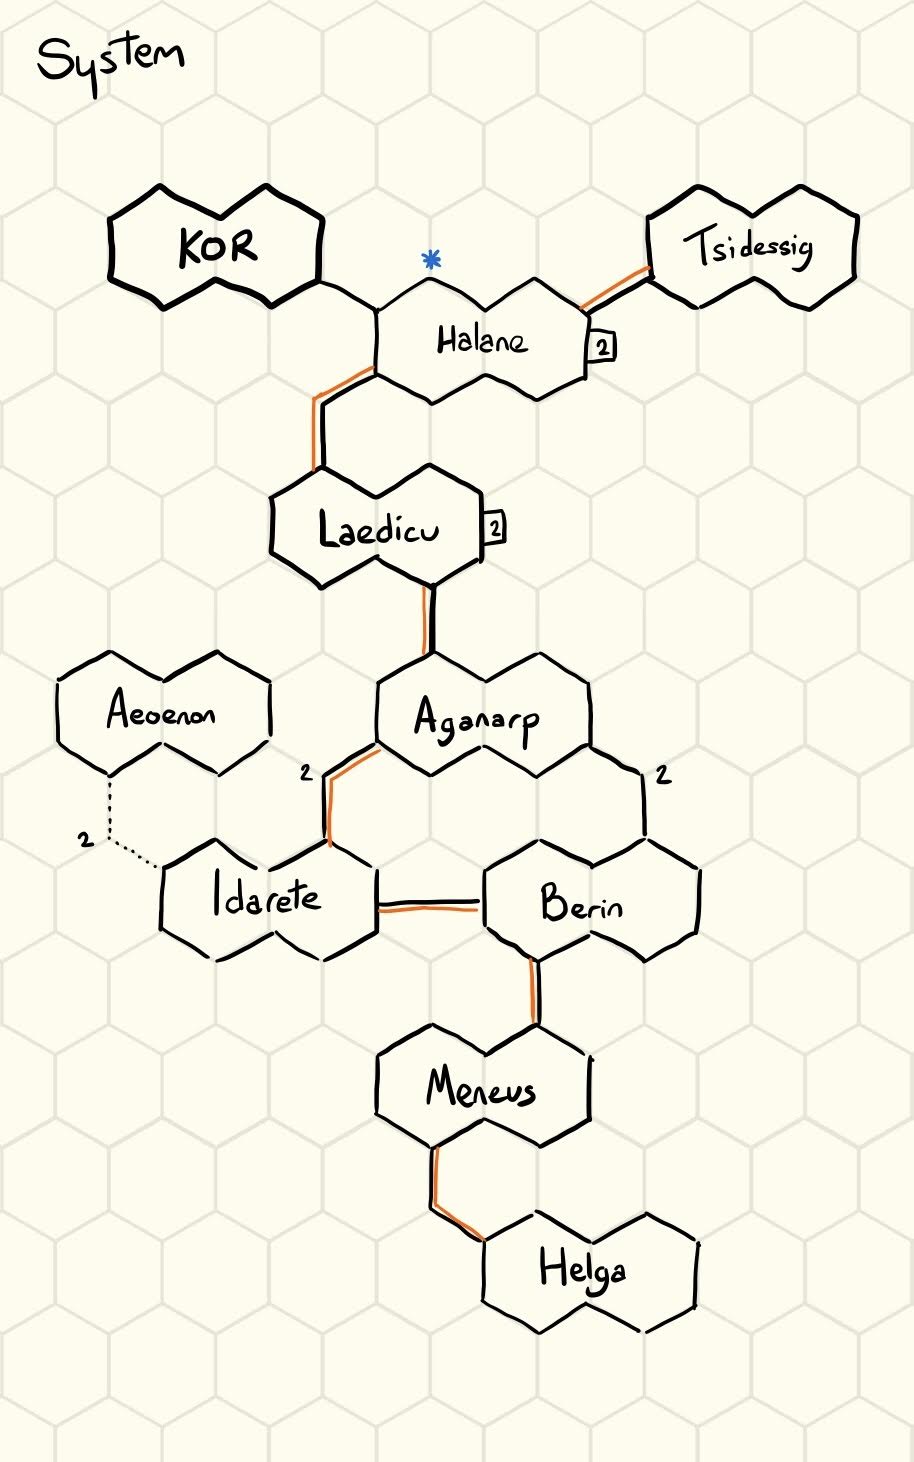 System
KOR
Tsidessig
*
Halane
2
Laedicu
2
Aeoenon
Aganarp
2
2
2
Idarete
Berin
Meneus
Helga